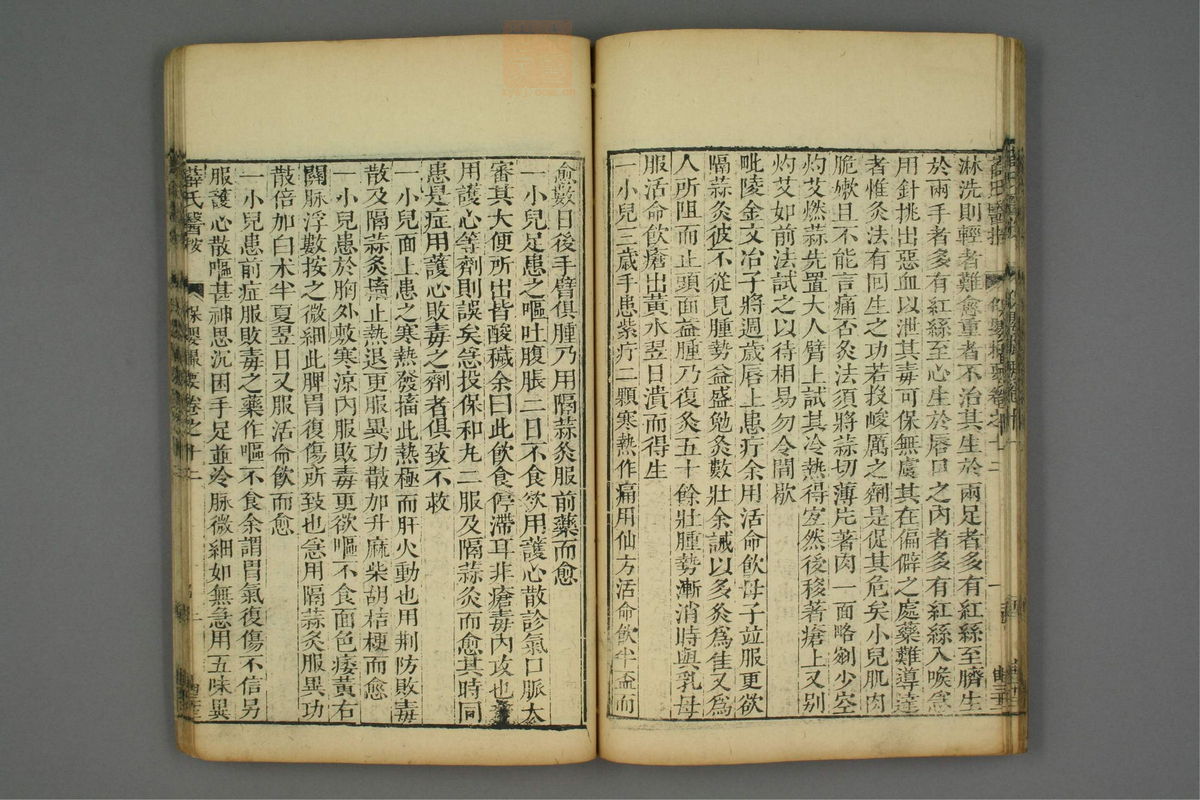 淋洗則輕者難愈重者不治其生於兩足者多有紅絲至臍生
於兩手者多有紅絲至心生於唇口之內者多有紅絲入喉急
用針挑出惡血以泄其毒可保無虞其在偏僻之處藥難導達
者惟灸法有回生之功若投峻厲之劑是促其危矣小兒肌肉
脆嫩且不能言痛否灸法須將蒜切薄片著肉一面略剜少空
灼艾燃蒜先置大人臂上試其冷熱得宜然後移著瘡上又別
灼艾如前法試之以待相易勿令間歇
毗陵金文冶子將週歲唇上患疔余用活命飲母子竝服更欲
隔蒜灸彼不從見腫勢益盛勉灸數壯余誡以多灸為佳又為
人所阻而止頭面益腫乃復灸五十餘壯腫勢漸消時與乳母
服活命飲瘡出黃水翌日潰而得生
一小兒三歲手患紫疔二顆寒熱作痛用仙方活命飲半盃而
愈數日後手臂俱腫乃用隔蒜灸服前藥而愈
一小兒足患之嘔吐腹脹二日不食欲用護心散診氣口脈大
審其大便所出皆酸穢余曰此飲食停滯耳非瘡毒內攻也
用護心等劑則誤矣急投保和丸二服及隔蒜灸而愈其時同
患是症用護心敗毒之劑者俱致不救
一小兒面上患之寒熱發搐此熱極而肝火動也用荊防敗毒
散及隔蒜灸搐止熱退更服異功散加升麻柴胡桔梗而愈
一小兒患於胸外敷寒涼內服敗毒更欲嘔不食面色痿黃右
關脈浮數按之微細此脾胃復傷所致也急用隔蒜灸服異功
散倍加白朮半夏翌日又服活命飲而愈
一小兒患前症服敗毒之藥作嘔不食余謂胃氣復傷不信另
服護心散嘔甚神思沉困手足並冷脈微細如無急用五味異
薛氏醫按
保嬰撮要卷之十二